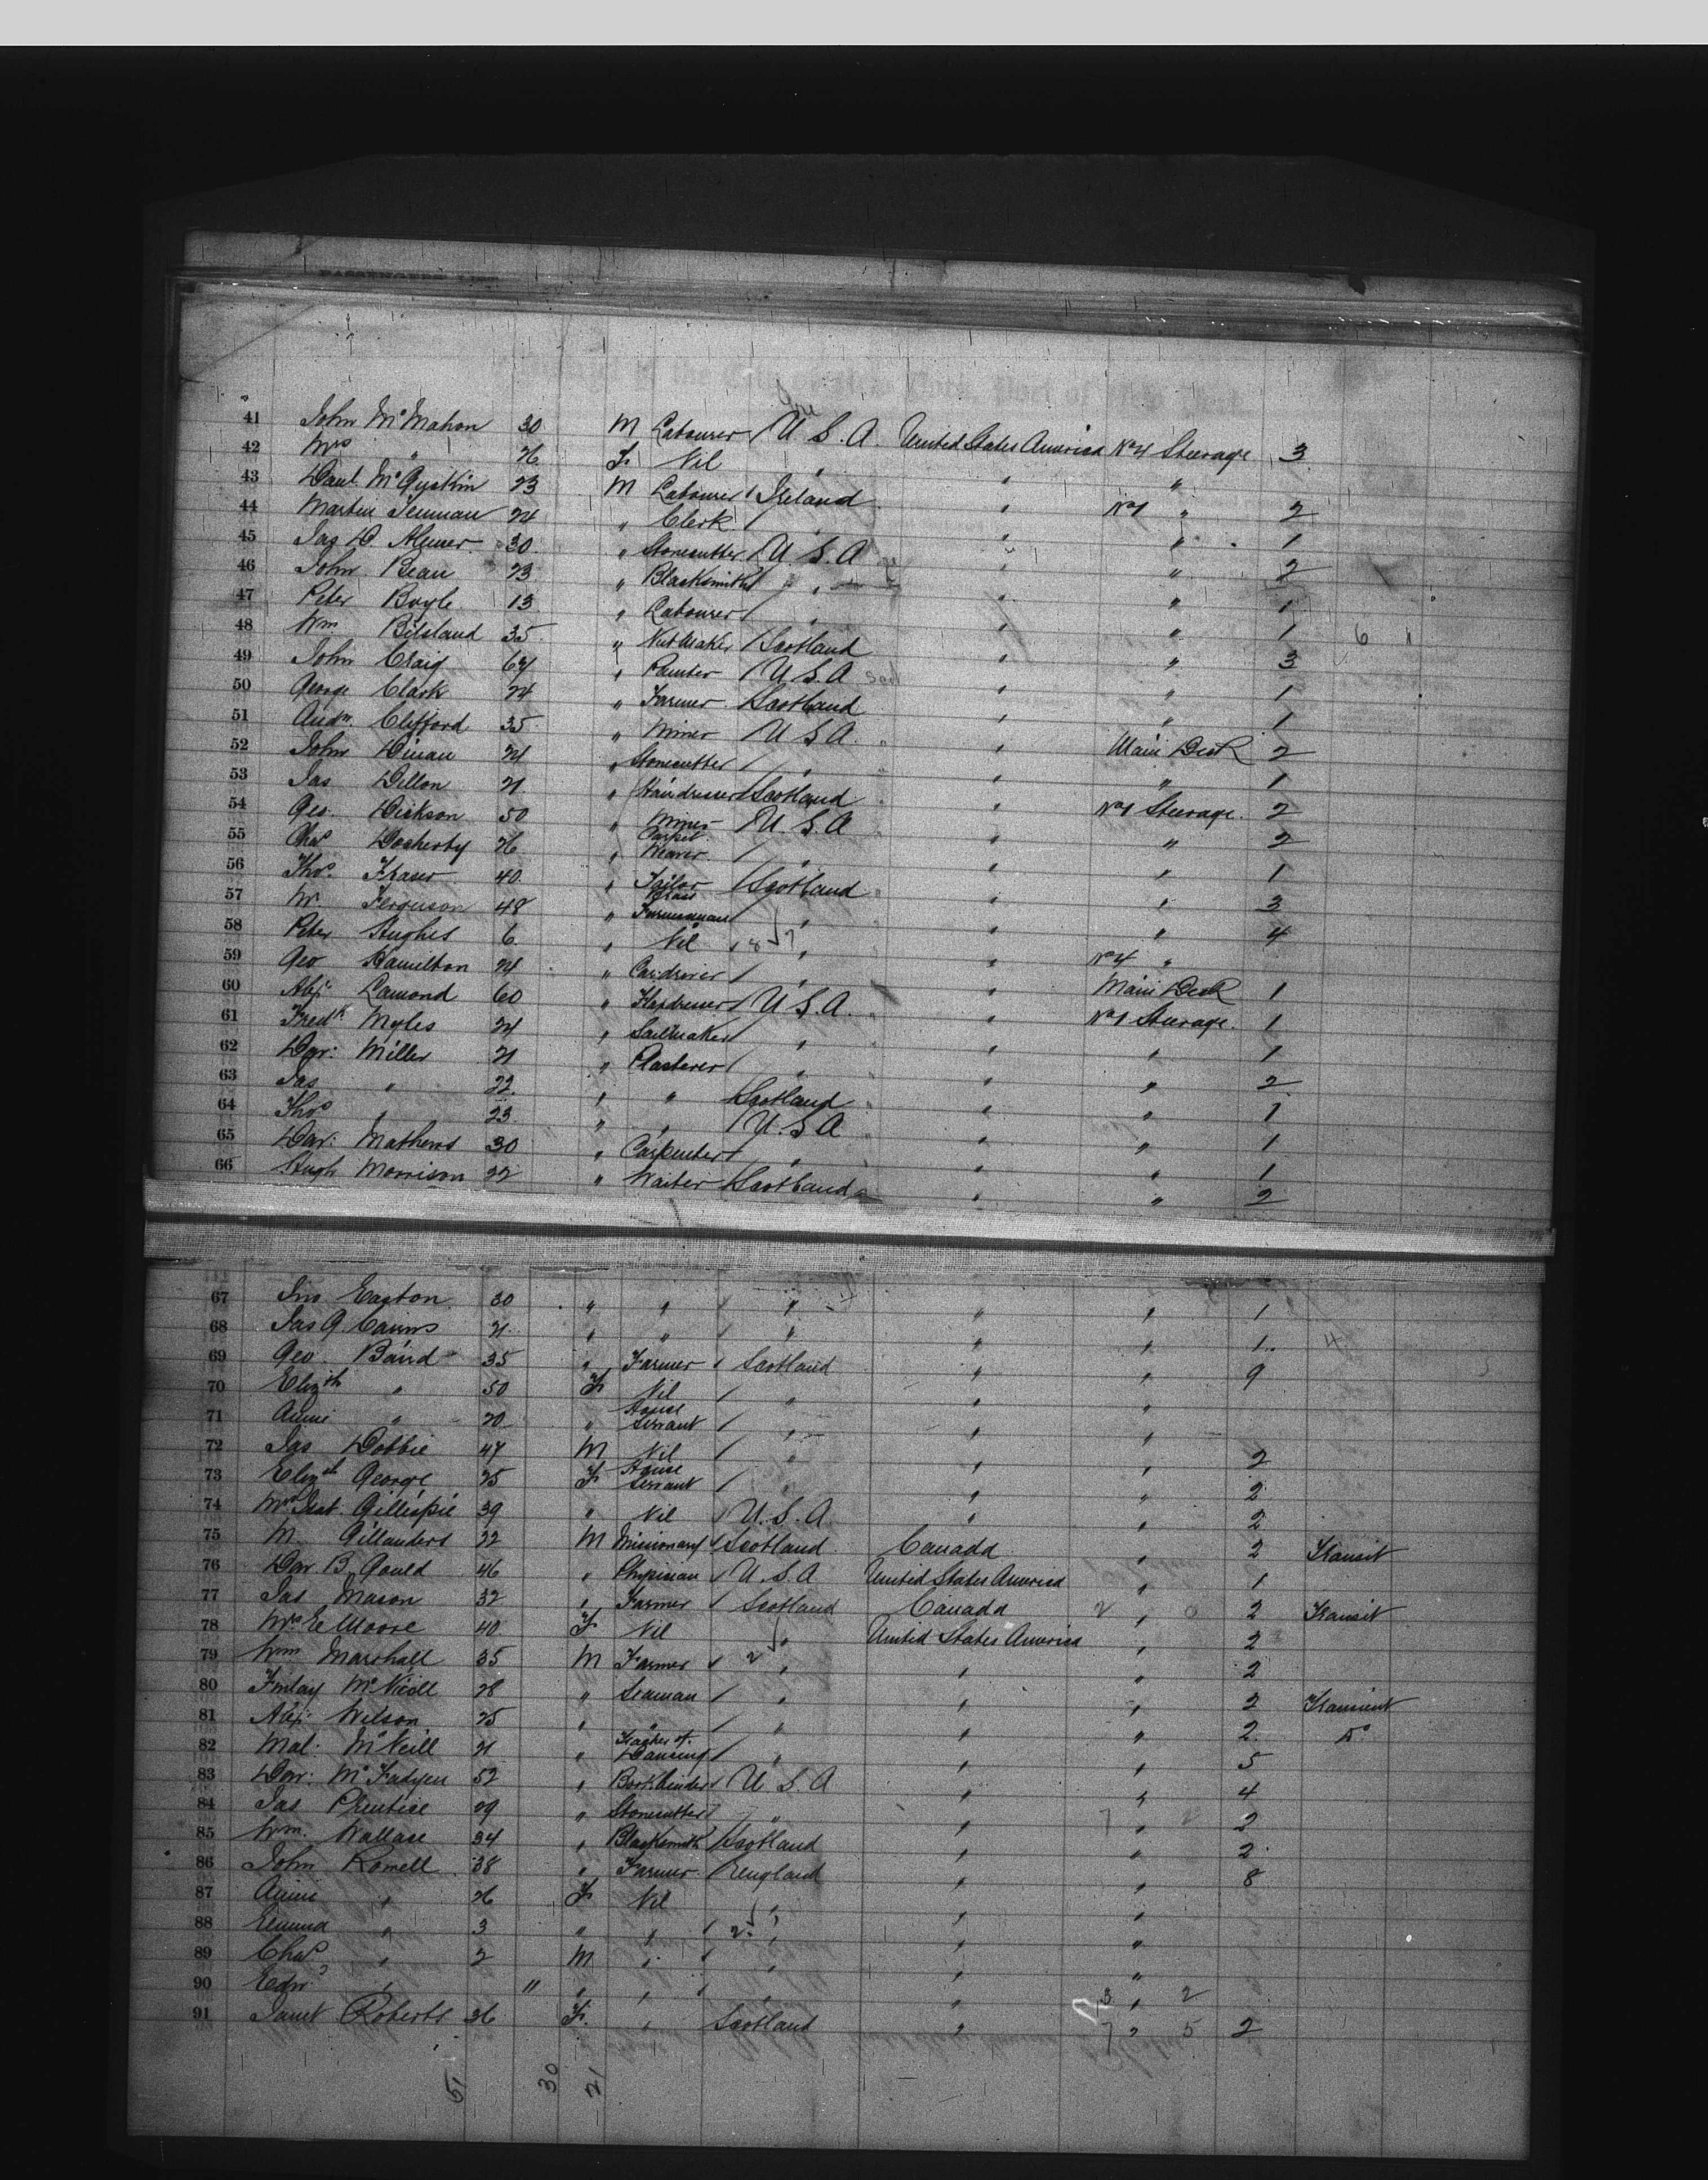 PASSENGERS LIST
41 John McMahon 30 M Labourer / U.S.A. United States America No 4 Steerage 3
42 Mrs " 26 F Nil " " "
43 Danl McGuskin 23 M Labourer / Ireland " No 1 " 2
44 Martin 24 " Clerk / " " " 1
45 Jas D. 30 " Stonecutter / U.S.A " " 2
46 John Bean 23 " Blacksmith / " " " 1
47 Peter Boyle 13 " Labourer / " " " 1 6 1
48 Wm Bilsland 35 " Nutmaker / Scotland " " 3
49 John Craig 64 " Painter / U.S.A " " 1
50 George Clark 24 " Farmer Scotland " " 1
51 Andw Clifford 35 " Miner / U S A " Main Deck 2
52 John Dinan 24 " Stonecutter / " " " 1
53 Jas Dillon 21 " Hairdresser / Scotland " No 1 Steerage 2
54 Geo. Dickson 50 " Miner / U.S.A " " 2
55 Chas Docherty 26 " Carpet Weaver / " " " 1
56 Thos. Fraser 40 " Tailor / Scotland " " 3
57 W. Ferguson 48 " Brass / " " " 4
58 Peter Hughes 6 " Nil / " " No 4 "
59 Geo Hamilton 24 " Cardriver / " " Main Deck 1
60 Alexr Lamond 60 " Flaxdresser / U.S.A. " No 1 Steerage 1
61 Fredk Myles 24 " Sailmaker / " " " 1
62 Dav: Miller 21 " Plasterer / " " " 2
63 Jas " 22 " " Scotland " " 1
64 Thos " 23 " " / U.S.A " " 1
65 Dav: Mathews 30 " Carpenter / " " " 1
66 Hugh Morrison 22 " Waiter / Scotland " " 2
67 Jno Easton 30 " " / " " " 1
68 Jas G Cairns 21 " " / " " " 1 4
69 Geo Baird 35 " Farmer / Scotland " " 9
70 Elizth " 50 F Nil / " " "
71 Annie " 20 " House Servant / " " "
72 Jas Dobbie 47 M Nil / " " " 2
73 Elizth George 25 F House Servant / " " " 2
74 Mrs Gillespie 39 " Nil / U.S.A " " 2
75 M. Gillanders 22 M Missionary / Scotland Canada " 2 Transit
76 Dav B. Gould 46 " Physician / U.S.A United States America " 1
77 Jas Mason 32 " Farmer / Scotland Canada 2 " 0 2 Transit
78 Mrs E Moore 40 F Nil " United States America " 2
79 Wm Marshall 35 M Farmer / 2 " " " 2
80 Finlay McNicoll 28 " Seaman / " " " 2 Transient
81 Alexr Wilson 25 " " / " " " 2 Do
82 Mal. McNeill 21 " Teacher of Dancing / " " " 5
83 Dav: McFadyen 52 " Bookbinder / U.S.A " " 4
84 Jas Prentice 29 " Stonecutter / " " 7 " 2
85 Wm. Wallace 34 " Blacksmith / Scotland " " 2
86 John Rowell 38 " Farmer / England " " 8
87 Annie " 26 F Nil " " "
88 Emma " 3 " " / 2 " " "
89 Chas " 2 M " / " " "
90 Edw " " " " / " " 3 " 2
91 Janet Roberts 36 F. " Scotland " 7 " 5 2
51 30 21